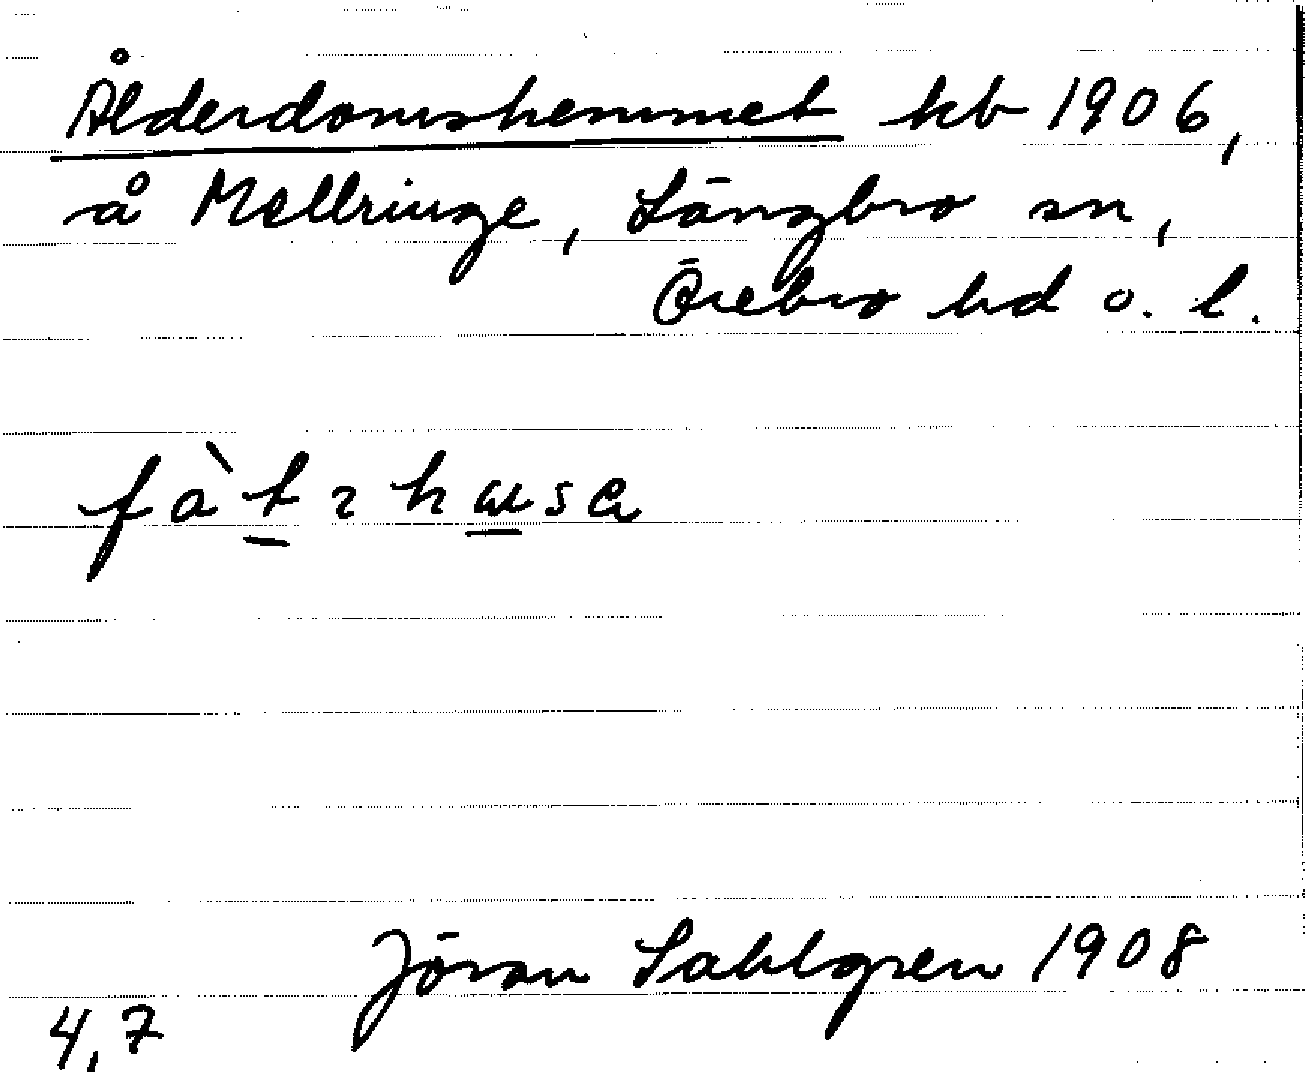 Ålderdomshemmet kb 1906,
å Mellringe, Längbro sn,
Örebro hd o. l.
Jöran Sahlgren 1908
4,7